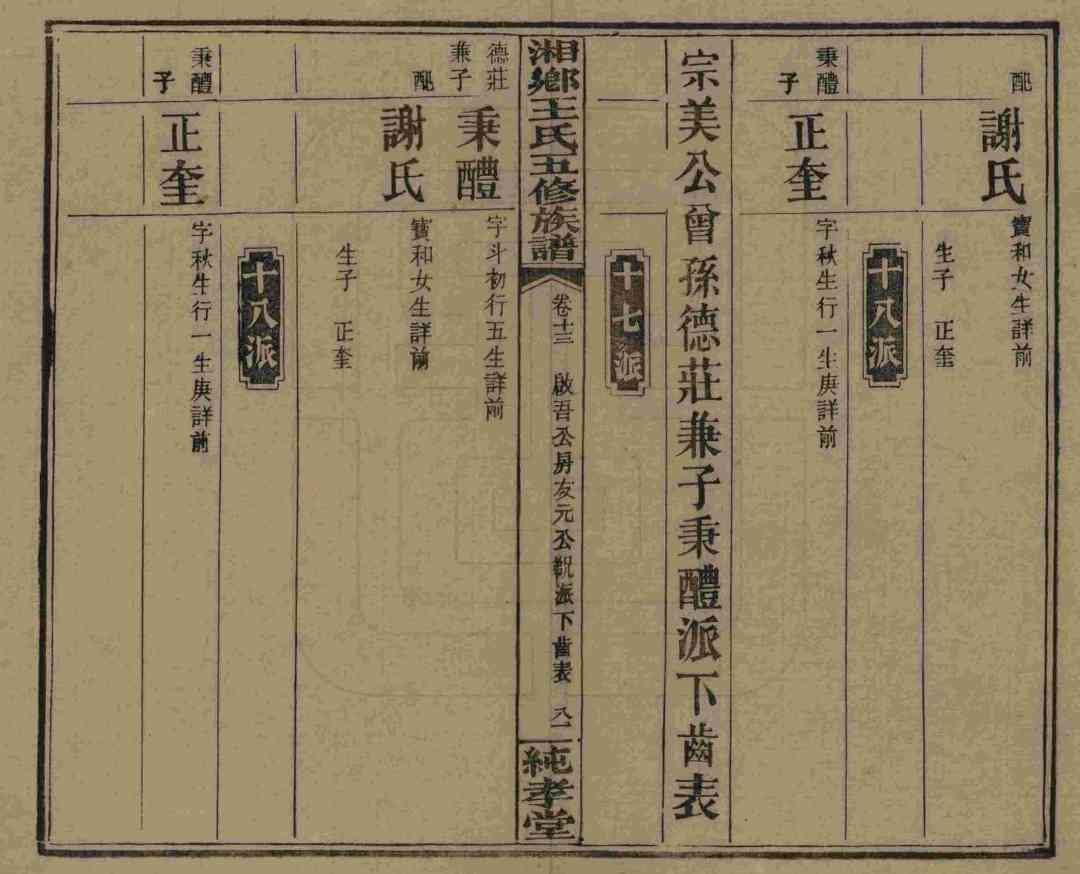 配
謝氏
寶和女生詳前
生子 正奎
十八派
秉醴
子
正奎
字秋生行一生庚詳前
宗美公曾孫德莊兼子秉醴派下齒表
十七派
湘鄉王氏五修族譜
卷十三 啟吾公房友元公觀派下齒表 八一
純孝堂
德莊
兼子
秉醴
字斗初行五生詳前
配
謝氏
寶和女生詳前
生子 正奎
十八派
秉醴
子
正奎
字秋生行一生庚詳前